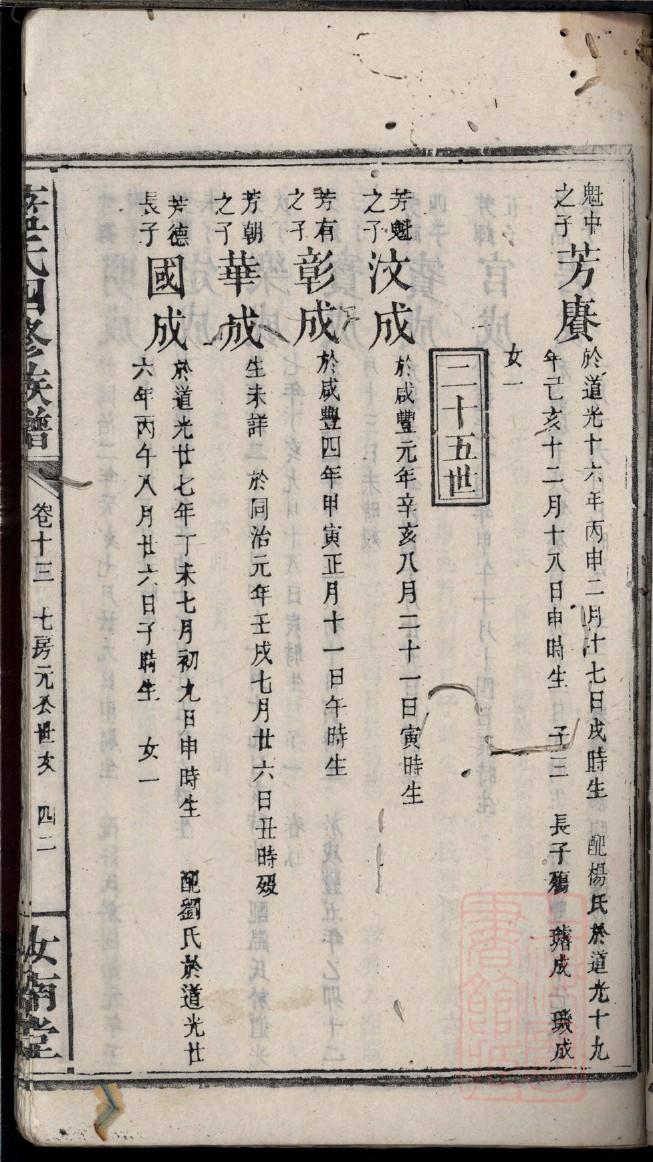 魁中之子 芳賡 於道光十六年丙申二月十七日戌時生 配楊氏於道光十九
年己亥十二月十八日申時生 子三 長子殤 璿成 璣成
女一
二十五世
芳魁之子 汶成 於咸豐元年辛亥八月二十一日寅時生
芳有之子 彰成 於咸豐四年甲寅正月十一日午時生
芳朝之子 華成 生未詳 於同治元年壬戌七月廿六日丑時歿
芳德長子 國成 於道光廿七年丁未七月初九日申時生 配劉氏於道光廿
六年丙午八月廿六日子時生 女一
藍氏四修族譜 卷十三 七房元公世系 四二 汝南堂